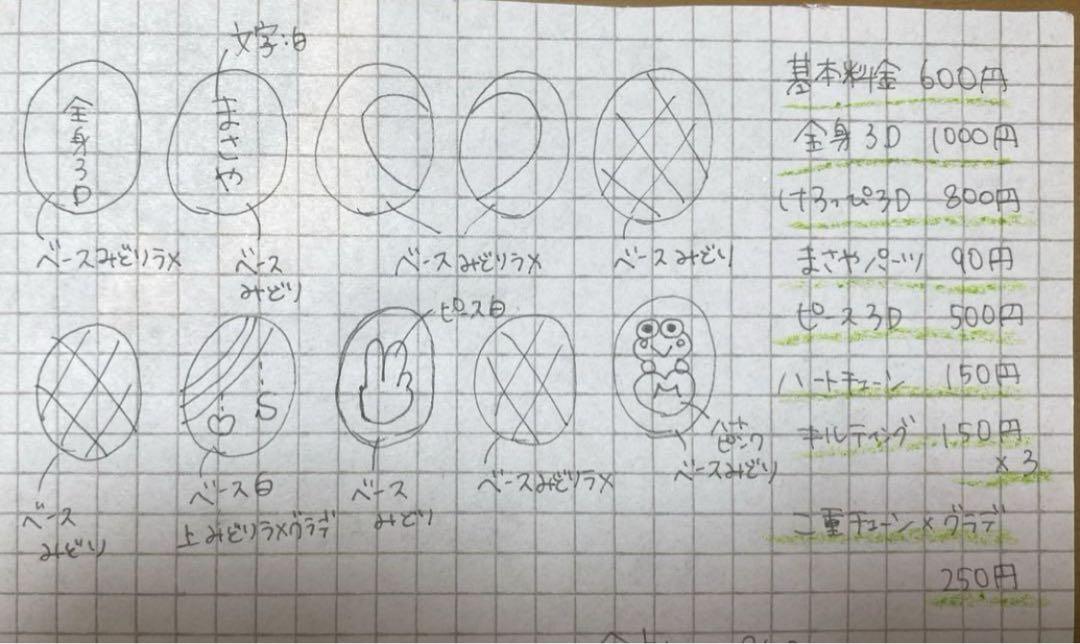 文字:白
全身3D
まさや
ベースみどりラメ
ベース
みどり
ベースみどりラメ
ベースみどり
ピース白
M
S
ハート
ピンク
ベース
みどり
ベース白
上みどりラメグラデ
ベース
みどり
ベースみどりラメ
ベースみどり
基本料金 600円
全身3D 1000円
けろっぴ3D 800円
まさやパーツ 90円
ピース3D 500円
ハートチェーン 150円
キルティング 150円
×3
二重チェーン×グラデ
250円